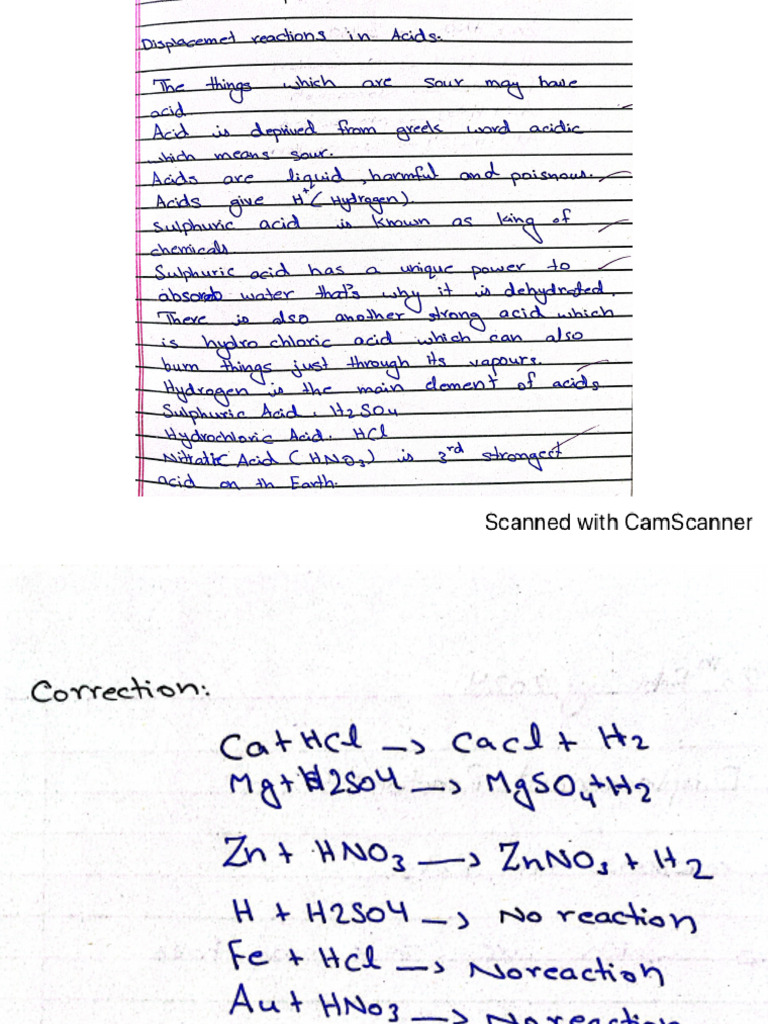 Displacemet reactions in Acids.
The things which are sour may have
acid
Acid is deprived from greek word acidic
which means sour.
Acids are liquid, harmful and poisnous.
Acids give H+2 (Hydrogen).
Sulphuric acid is known as king of
chemicals
Sulphuric acid has a unique power to
absorb water that's why it is dehydrated.
There is also another strong acid which
is hydro chloric acid which can also
burn things just through its vapours.
Hydrogen is the main element of acids
Sulphuric Acid. H2SO4
Hydrochloric Acid. HCl
Nitratic Acid (HNO3) is 3rd strongest
acid on th Earth.
Scanned with CamScanner
Correction:
Ca + HCl → CaCl + H2
Mg + H2SO4 → MgSO4 + H2
Zn + HNO3 → ZnNO3 + H2
H + H2SO4 → No reaction
Fe + HCl → Noreaction
Au + HNO3 → Noreaction